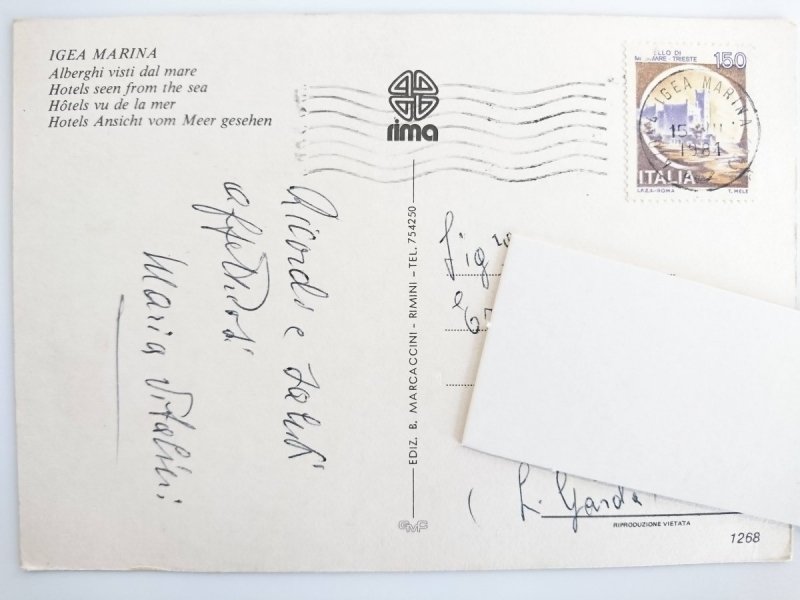 IGEA MARINA
Alberghi visti dal mare
Hotels seen from the sea
Hôtels vu de la mer
Hotels Ansicht vom Meer gesehen
rima
ELLO DI 150
MARE - TRIESTE
IGEA MARINA
15
1981
ITALIA
I.P.Z.S. - ROMA T. MELE
Ricordi e saluti
affettuosi
Maria Vitalini
EDIZ. B. MARCACCINI - RIMINI - TEL. 754250
Sig
(L. Garda
GMF
RIPRODUZIONE VIETATA
1268